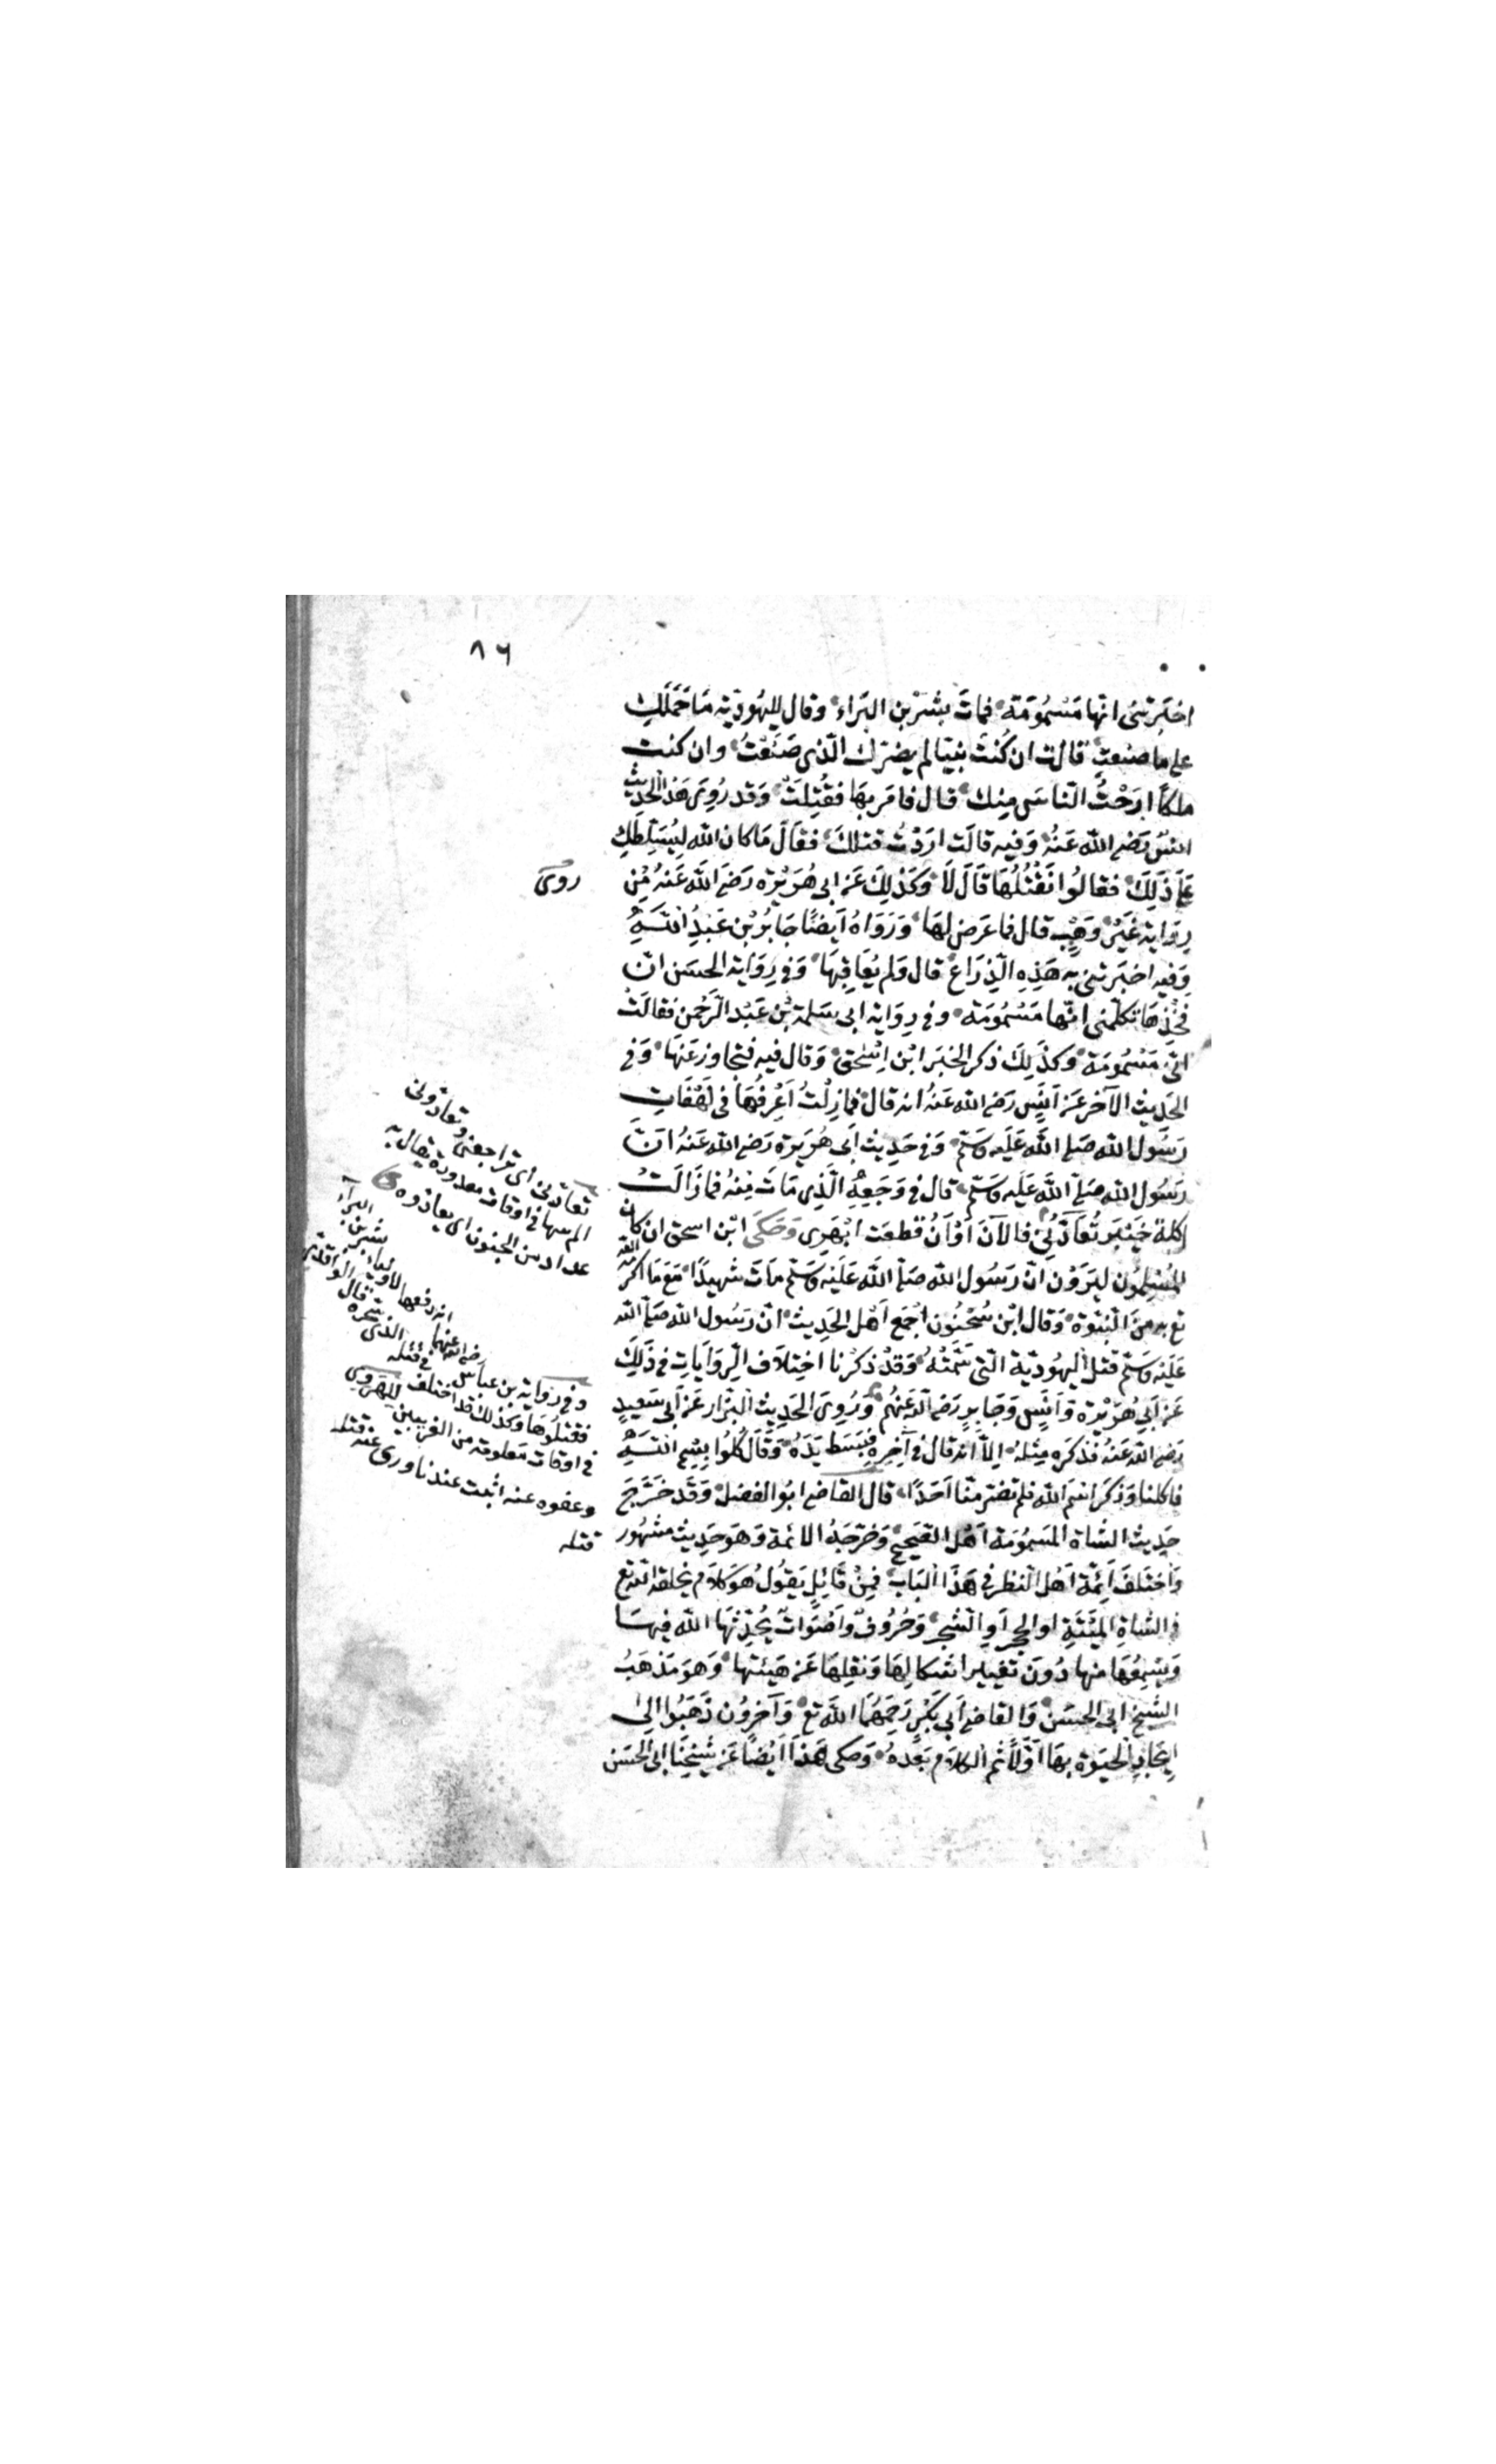 ٨٦
اخبرتنى انها مَسْمُومَة فمات بشر بن البراء وقال لليهوديّة مَا حَمَلَكِ
على ما صنعتِ قالت ان كُنتَ نبيّا لم يضرّك الّذى صَنَعْتُ وان كنت
ملكًا ارَحْتُ النّاسَ مِنك قال فامر بهَا فقُتِلَتْ وَقد رُوِىَ هَذا الحَديث
انسٌ رَضى الله عَنهُ وَفيه قالَت ارَدْتُ قتلكَ فقَالَ مَا كان الله ليُسَلّطَكِ
عَلَى ذَلِكَ فقالُوا نَقْتُلُهَا قَالَ لَا وَكَذلِكَ عَن ابى هُرَيْرَة رَضىَ اللهَ عَنهُ مِنْ
روى
رِوَاية غَيْرِ وَهْبٍ قال فما عَرض لهَا وَرَوَاهُ اَيضًا جَابرُ بْن عَبدِ اللهِ
وَفيه اخبَرَتنى به هَذِهِ الذِّرَاع قال وَلم يُعَاقِبهَا وَفى رِوَاية الحسَن انّ
فَخْذِهَا تكلّمنى انّها مَسْمُومَة وفى رِوَاية ابى سَلمة بْن عَبْد الرَّحْمن فقالَتْ
انّى مَسْمُومَة وكذَلِكَ ذكر الخبَرَ ابْن اِسْحٰق وَقال فيه فتجاوزعَنهَا وَفى
الحَدِيث الآخر عَن اَنَسٍ رَضى الله عَنهُ انه قال فمازِلْتُ اَعْرِفُهَا فى لَهَوَاتِ
رَسُول الله صَلى اللهَ عَليْه وَسَلّم وَفى حَدِيث اَبى هُرَيرَة رَضى الله عَنهُ انّ
رَسُول الله صَلى اللهَ عَليْه وَسَلّم قال فى وَجَعِهِ الَّذِى مَاتَ مِنهُ فمازَالَتْ
اكلة خَيْبَر تُعَآدُّنِى فالآنَ اَوَانُ قَطعَت ابْهَرِى وَحَكَى ابْن اسحق ان كان
المُسْلِمُون ليَرَوْن انّ رَسُول الله صَلى اللهَ عَليْه وَسَلّم مَاتَ شهيدًا مَعَ مَا اكرمه الله
تع به مِنَ النبُوّة وَقال ابْن سُحْنُون اَجْمَع اَهْل الحَدِيث انّ رَسُول الله صَلى الله
عَليْه وَسَلّم قتل اليهُودِيّة الّتى سَمّتْهُ وَقدْ ذكرْنا اختِلاَف الرِّوَايَاتِ فى ذَلِكَ
عَن اَبى هُرَيْرَة وَاَنَسٍ وَجَابِرٍ رَضى الله عَنهُم وَرُوِىَ الحَدِيث البَزّار عَن اَبى سَعِيدٍ
رَضى الله عَنهُ فذكَرَه مِثلهُ اِلاّ انه قال فى آخِرِهِ فبَسَط يَدَهُ وَقَال كُلُوا بِسْمِ اللهِ
فاكلنا وَذكرَ اسْمَ الله فلم تضرّ منّا اَحَدًا قال القاضى ابُو الفضل وَقد خَرَّجَ
حَدِيث الشاة المَسمُومَة اَهْل الصّحيح وَخرّجَهُ الائمة وَهوَ حَدِيث مشهُور
وَاختَلَفَ اَئِمّة اَهْل النظر فى هَذَا البَاب فمِنْ قَائِلٍ يَقولُ هُوَ كَلاَم يخلقه الله تع
فى الشاةِ المَيْتَةِ او الحجر اَوِ الشجر وَحُرُوفٌ وَاَصْوَاتٌ يُحْدِثهَا الله فيهَا
وَيسْمِعُهَا منها دُونَ تَغيير اشكالِهَا وَنقلِهَا عَن هَيْئتِهَا وَهوَ مَذهَبُ
الشيخ ابى الحسَن وَالقاضى اَبى بَكْرٍ رَحِمَهُمَا اللهَ تع وَآخرُون ذَهَبُوا الى
اِيجَادِ الحيَوة بهَا اَوّلًا ثم الكلاَم بَعْدهُ وَحكى هَذَا اَيْضًا عَن شيْخِنَا ابى الحَسَن
تعآدّنى اى تراجعنى وتعاودنى
الم سمها فى اوقات معدودة يقال به
عداد من الجنون اى يعاوده
وفى رواية بن عباس رضى الله عنهما انه دفعها لاولياء بشر بن البرآء
فقتلُوهَا وكذلك قد اختلف فى قتله الذى سحره قال الواقدى
فى اوقات مَعلومة من الغريبين للهروى
وعفوه عنه اثبت عندنا وروى عنه قتله
قتله